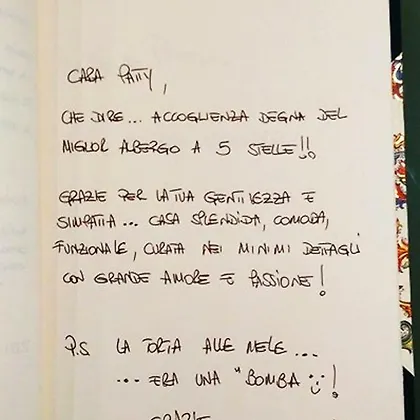 CARA PATTY,
CHE DIRE... ACCOGLIENZA DEGNA DEL
MIGLIOR ALBERGO A 5 STELLE!!
GRAZIE PER LA TUA GENTILEZZA E
SIMPATIA... CASA SPLENDIDA, COMODA,
FUNZIONALE, CURATA NEI MINIMI DETTAGLI
CON GRANDE AMORE E PASSIONE!
P.S LA TORTA ALLE MELE...
... ERA UNA "BOMBA"!
GRAZIE